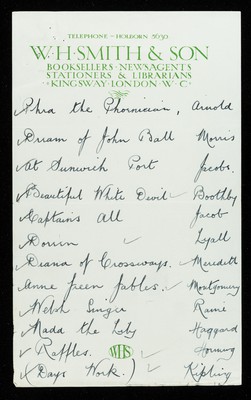 TELEPHONE - HOLBORN 5650
W·H·SMITH & SON
BOOKSELLERS · NEWSAGENTS
STATIONERS & LIBRARIANS
KINGSWAY · LONDON · W · C ·
✓Phra the Phoenician, Arnold
✓Dream of John Ball Morris
✓At Sunwich Port Jacobs.
✓Beautiful White Devil ✓ Boothby
✓Captains All Jacob
✓Dorrin ✓ Lyall
✓Diana of Crossways. ✓ Meredith
✓Anne Green Gables. ✓ Montgomery
✓Welsh Singer Raine
✓Nada the Lily Haggard
✓Raffles. WHS ✓ Hornung
✓(Days Work.) ✓ Kipling